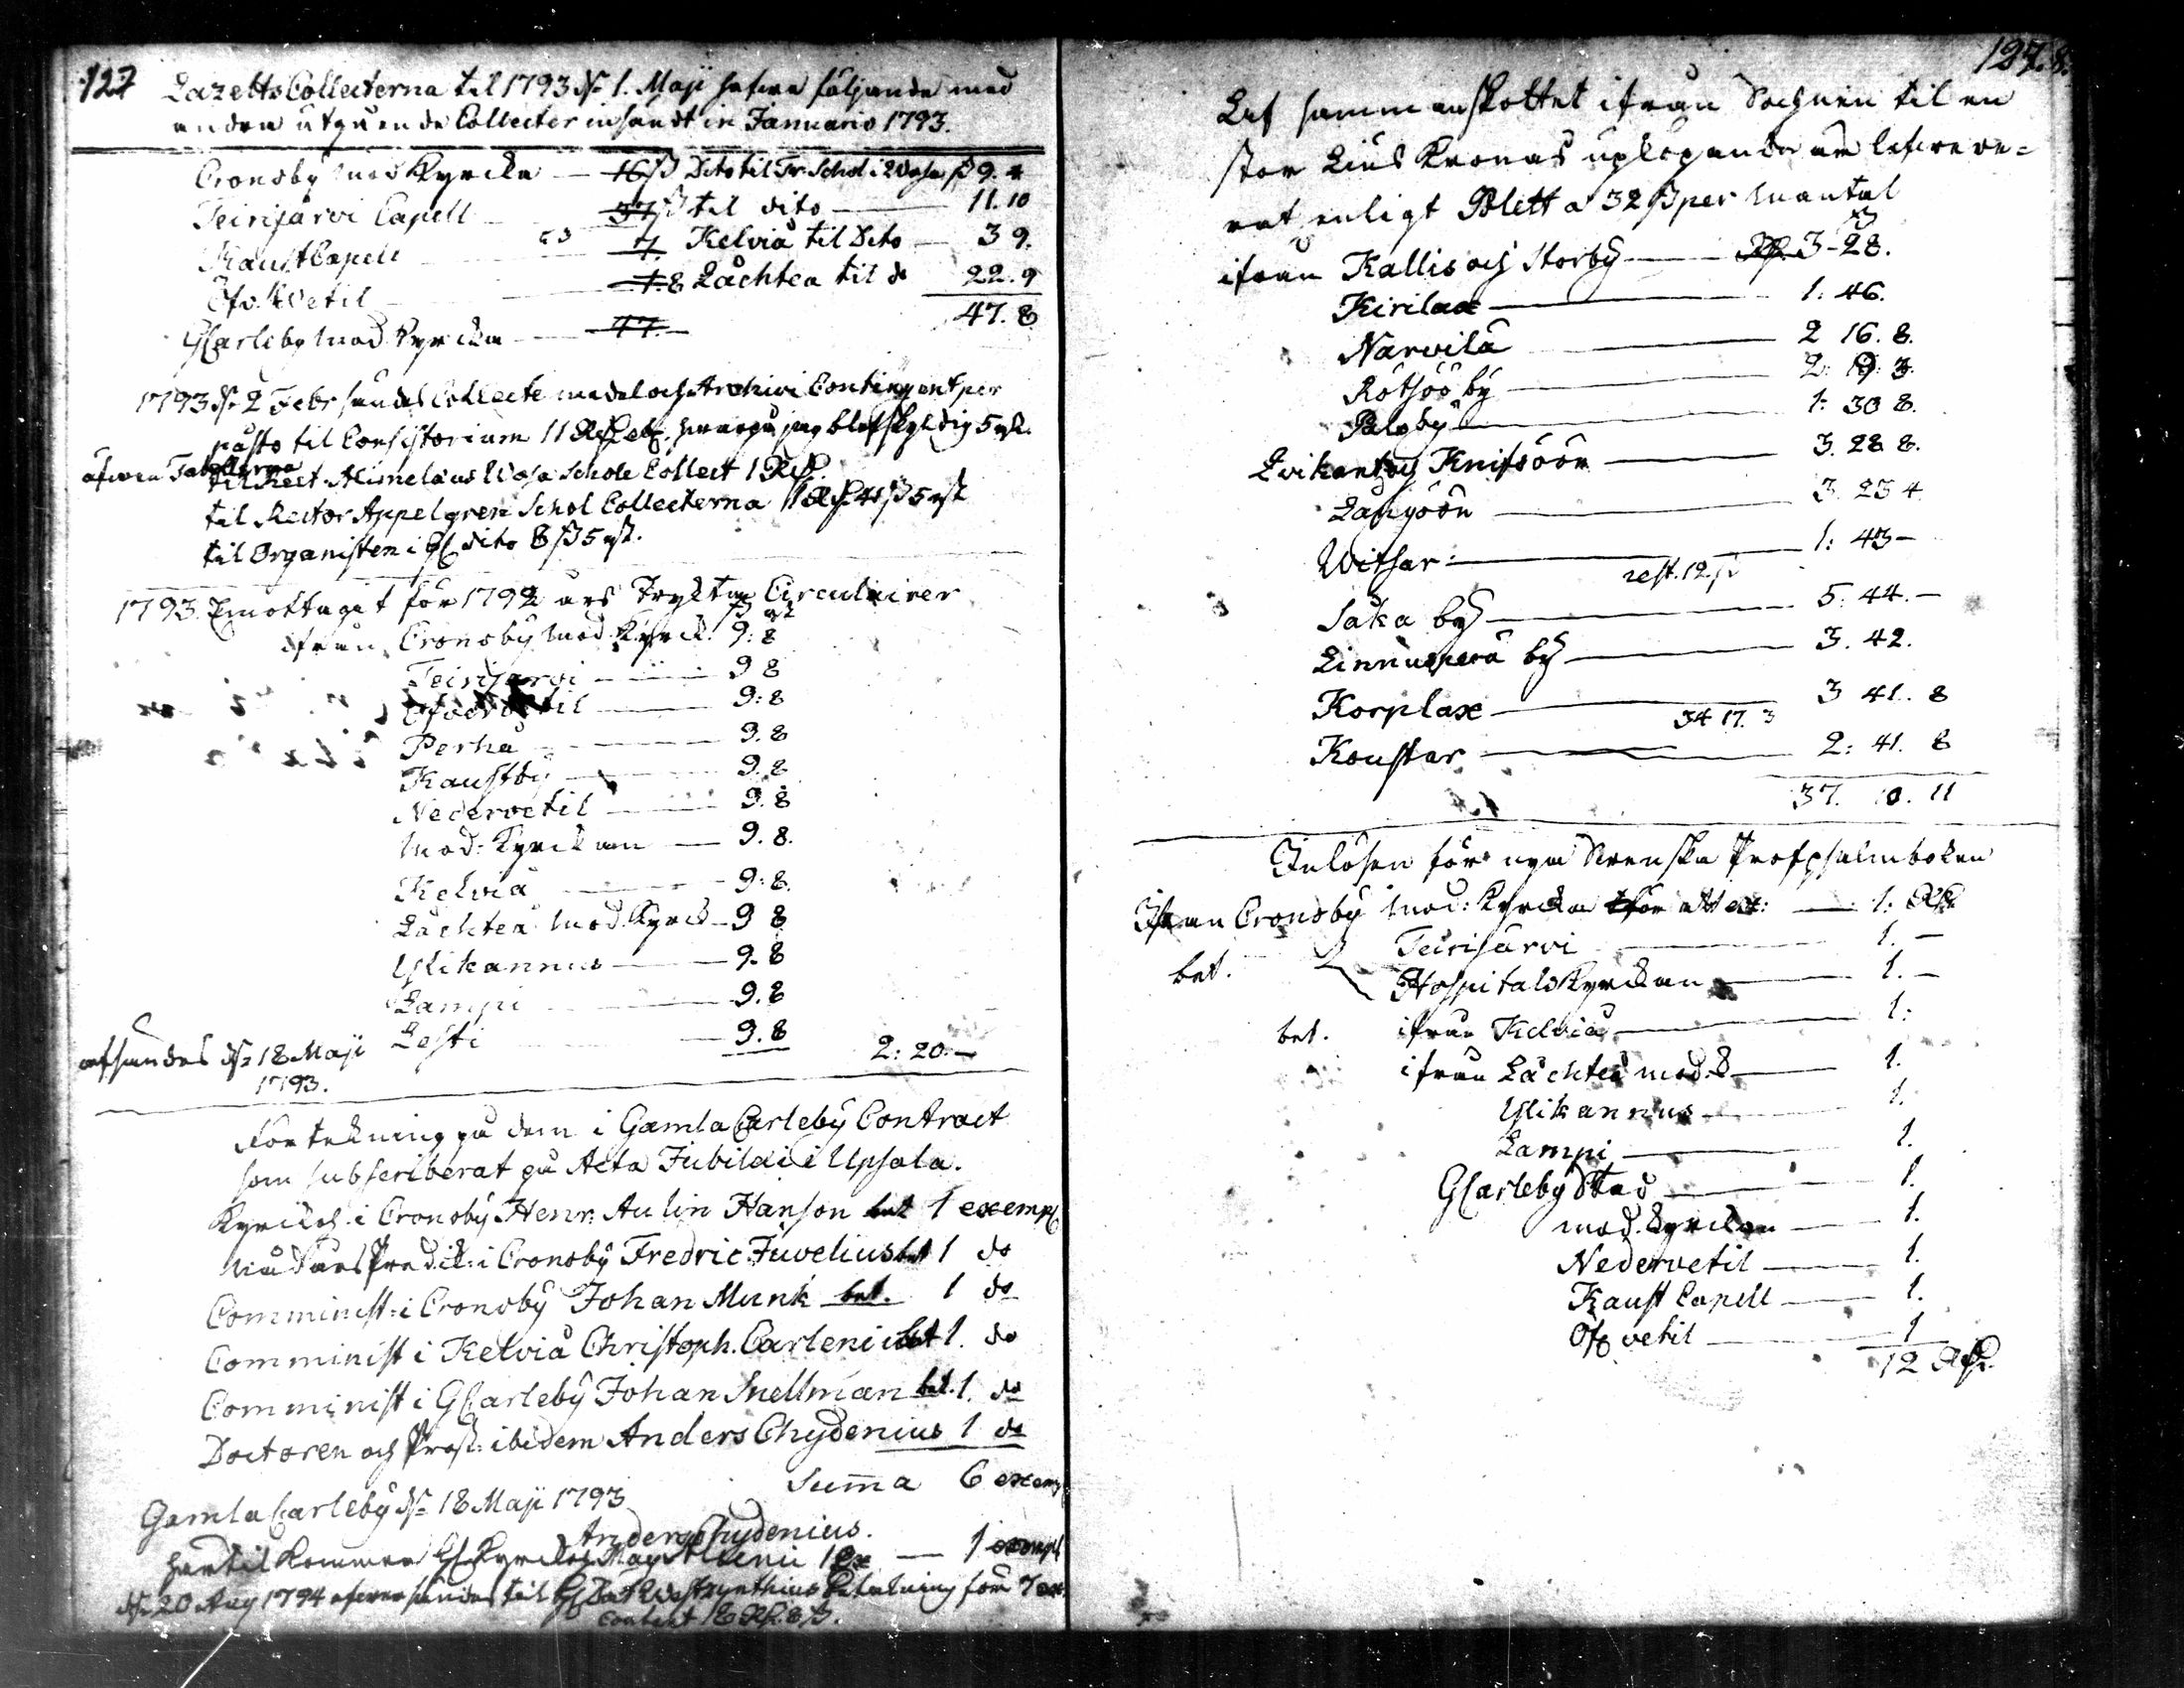 127
Lazetts Collecterna til 1793 d. 1. Maji hafwa följande med
andra utgående Collecter insandt in Januario 1793.
Cronoby Mod Kyrcka — 16 ß Dito til Tr. Schol i Wasa ß 9. 4
Teirijärvi Capell — 37 ß til dito — 11. 10
Kaust Capell — 7. Kelviå til Dito — 3 9.
Öfv. Vetil — 1. 8 Låchteå til do 22. 9
GCarleby Mod Kyrcka — 47. 47. 8
1793 d. 2 Febr sändes Collecte medel och Archivi Contingent per
påsto til Consistorium 11 Rd etc. hwarpå jag blef skyldig 5 rst.
äfwen Tabellerna
til Rect. Alimelæus Wasa Schole Collect 1 Rd.
til Rector Appelgren Schol Collecterna 1 Rd 41 ß 5 rst
til Organisten i GC dito 8 ß 5 rst.
1793. Emottagit för 1792 års Tryckta Circulairer
ß rst
ifrån Cronoby Mod. Kyrck. 9: 8
Teirijärvi — 9 8
Öfvervetil — 9: 8
Perho — 9. 8
Kaustby — 9. 8
Nedervetil — 9. 8
Mod: Kyrckan — 9. 8.
Kelviå — 9: 8.
Låchteå Mod. Kyrck — 9 8
Ylikannus — 9. 8
Lampi — 9. 8
Lesti — 9. 8
2: 20. —
afsändes d. 18 Maji
1793.
Förtekning på dem i Gamla Carleby Contract
som subscriberat på Acta Jubilæi i Upsala.
Kyrckoh. i Cronoby Henr. Aulin Hanson bet 1 exempl
Nådårs Predik: i Cronoby Fredric Juvelius bet 1 do
Comminist: i Cronoby Johan Munk bet. 1 do
Comminist i Kelviå Christoph. Carlenius bet 1. do
Comminist i GCarleby Johan Snellman bet. 1. do
Doctoren och Prost: ibidem Anders Chydenius 1 do
Summa 6 exemp
Gamla Carleby d. 18 Maji 1793
Anders Chydenius.
härtil kommer GC Kyrckoh. Mag 1 ex — 1 exempl
d. 20 Aug 1794 afsändes til betalning för 7 ex
contant 18 Rd. 8 ß.
127. 8.
Lef sammanskottet ifrån Socknen til en
stor Lius Kronas uplopande är lefwere=
rat enligt Polett a 32 ß per Mantal
ß
ifrån Kallis och Storby — Rd. 3 - 28.
Kirilax — 1. 46.
Narvila — 2 16. 8.
Rötsöö by — 2: 19: 3.
Palo by — 1: 30 8.
Lvikant och Knifsöön — 3. 28 8.
Långöön — 3. 25 4.
Witsar: — 1: 43 —
rest. 12 ß
Såka by — 5: 44. —
Linnusperä by — 3. 42.
Korplax — 3 41. 8
34 17. 3
Koustar — 2: 41. 8
37. 10. 11
Inlösen för nya Swenska Profpsalmboken
Ifrån Cronoby Mod: Kyrcka för ett ex: — 1: Rd.
Teirijärvi — 1. —
bet.
Hospitals Kyrckan — 1. —
bet. ifrån Kelviå — 1:
ifrån Låchteå mod. K — 1.
Ylikannus — 1.
Lampi — 1.
GCarleby Stad — 1.
mod. Kyrckan — 1.
Nedervetil — 1.
Kaust Capell — 1.
Öfv vetil — 1
12 Rd.